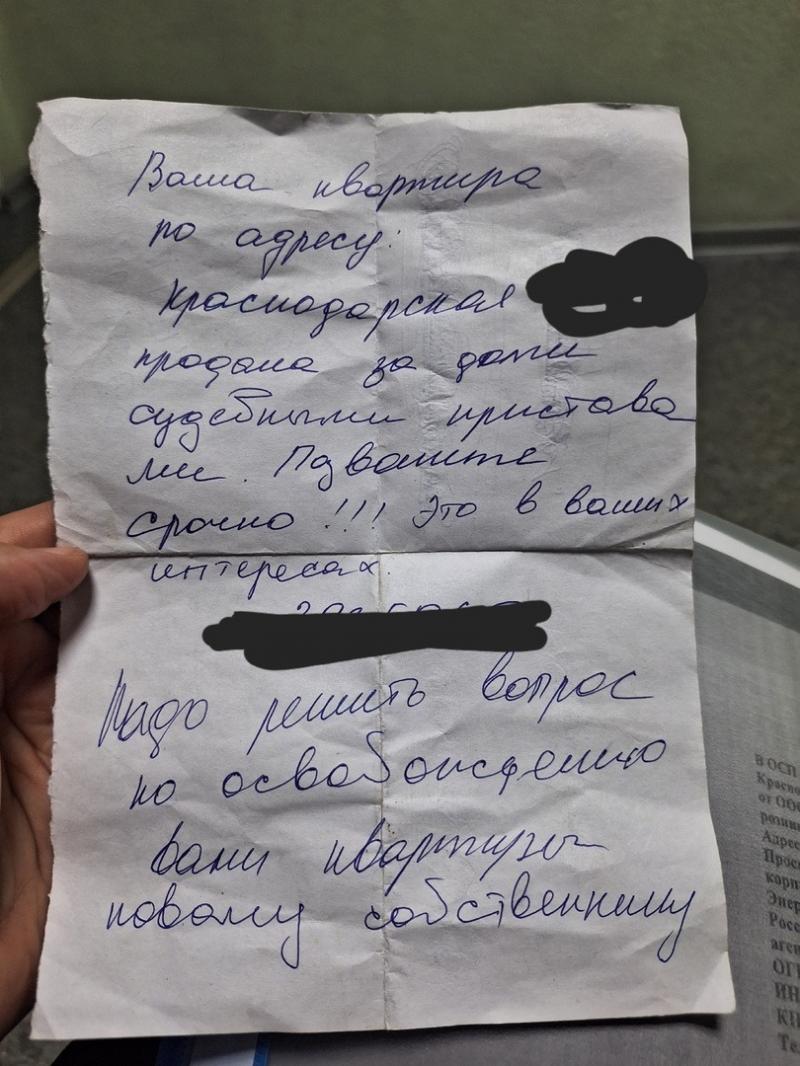 Ваша квартира
по адресу:
Краснодарская
продана за долги
судебными пристава
ми. Позвоните
срочно !!! Это в ваших
интересах.
Надо решить вопрос
по освобождению
вами квартиры
новому собственнику
В ОСП
Красно
от ООО
розни
Адрес
Прос
корп
Энер
Росс
аген
ОГР
ИН
КП
Те